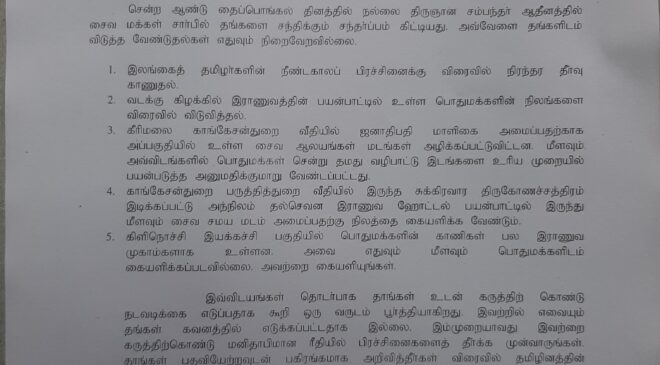 சென்ற ஆண்டு தைப்பொங்கல் தினத்தில் நல்லை திருஞான சம்பந்தர் ஆதீனத்தில்
சைவ மக்கள் சார்பில் தங்களை சந்திக்கும் சந்தர்ப்பம் கிட்டியது. அவ்வேளை தங்களிடம்
விடுத்த வேண்டுதல்கள் எதுவும் நிறைவேறவில்லை.
1. இலங்கைத் தமிழர்களின் நீண்டகாலப் பிரச்சினைக்கு விரைவில் நிரந்தர தீர்வு
காணுதல்.
2. வடக்கு கிழக்கில் இராணுவத்தின் பயன்பாட்டில் உள்ள பொதுமக்களின் நிலங்களை
விரைவில் விடுவித்தல்.
3. கீரிமலை காங்கேசன்துறை வீதியில் ஜனாதிபதி மாளிகை அமைப்பதற்காக
அப்பகுதியில் உள்ள சைவ ஆலயங்கள் மடங்கள் அழிக்கப்பட்டுவிட்டன. மீளவும்
அவ்விடங்களில் பொதுமக்கள் சென்று தமது வழிபாட்டு இடங்களை உரிய முறையில்
பயன்படுத்த அனுமதிக்குமாறு வேண்டப்பட்டது.
4. காங்கேசன்துறை பருத்தித்துறை வீதியில் இருந்த சுக்கிரவார திருகோணச்சத்திரம்
இடிக்கப்பட்டு அந்நிலம் தல்செவன இராணுவ ஹோட்டல் பயன்பாட்டில் இருந்து
மீளவும் சைவ சமய மடம் அமைப்பதற்கு நிலத்தை கையளிக்க வேண்டும்.
5. கிளிநொச்சி இயக்கச்சி பகுதியில் பொதுமக்களின் காணிகள் பல இராணுவ
முகாம்களாக உள்ளன. அவை எதுவும் மீளவும் பொதுமக்களிடம்
கையளிக்கப்படவில்லை. அவற்றை கையளியுங்கள்.
இவ்விடயங்கள் தொடர்பாக தாங்கள் உடன் கருத்திற் கொண்டு
நடவடிக்கை எடுப்பதாக கூறி ஒரு வருடம் பூர்த்தியாகிறது. இவற்றில் எவையும்
தங்கள் கவனத்தில் எடுக்கப்பட்டதாக இல்லை. இம்முறையாவது இவற்றை
கருத்திற்கொண்டு மனிதாபிமான ரீதியில் பிரச்சினைகளைத் தீர்க்க முன்வாருங்கள்.
தாங்கள் பதவியேற்றவுடன் பகிரங்கமாக அறிவித்தீர்கள் விரைவில் தமிழினத்தின்